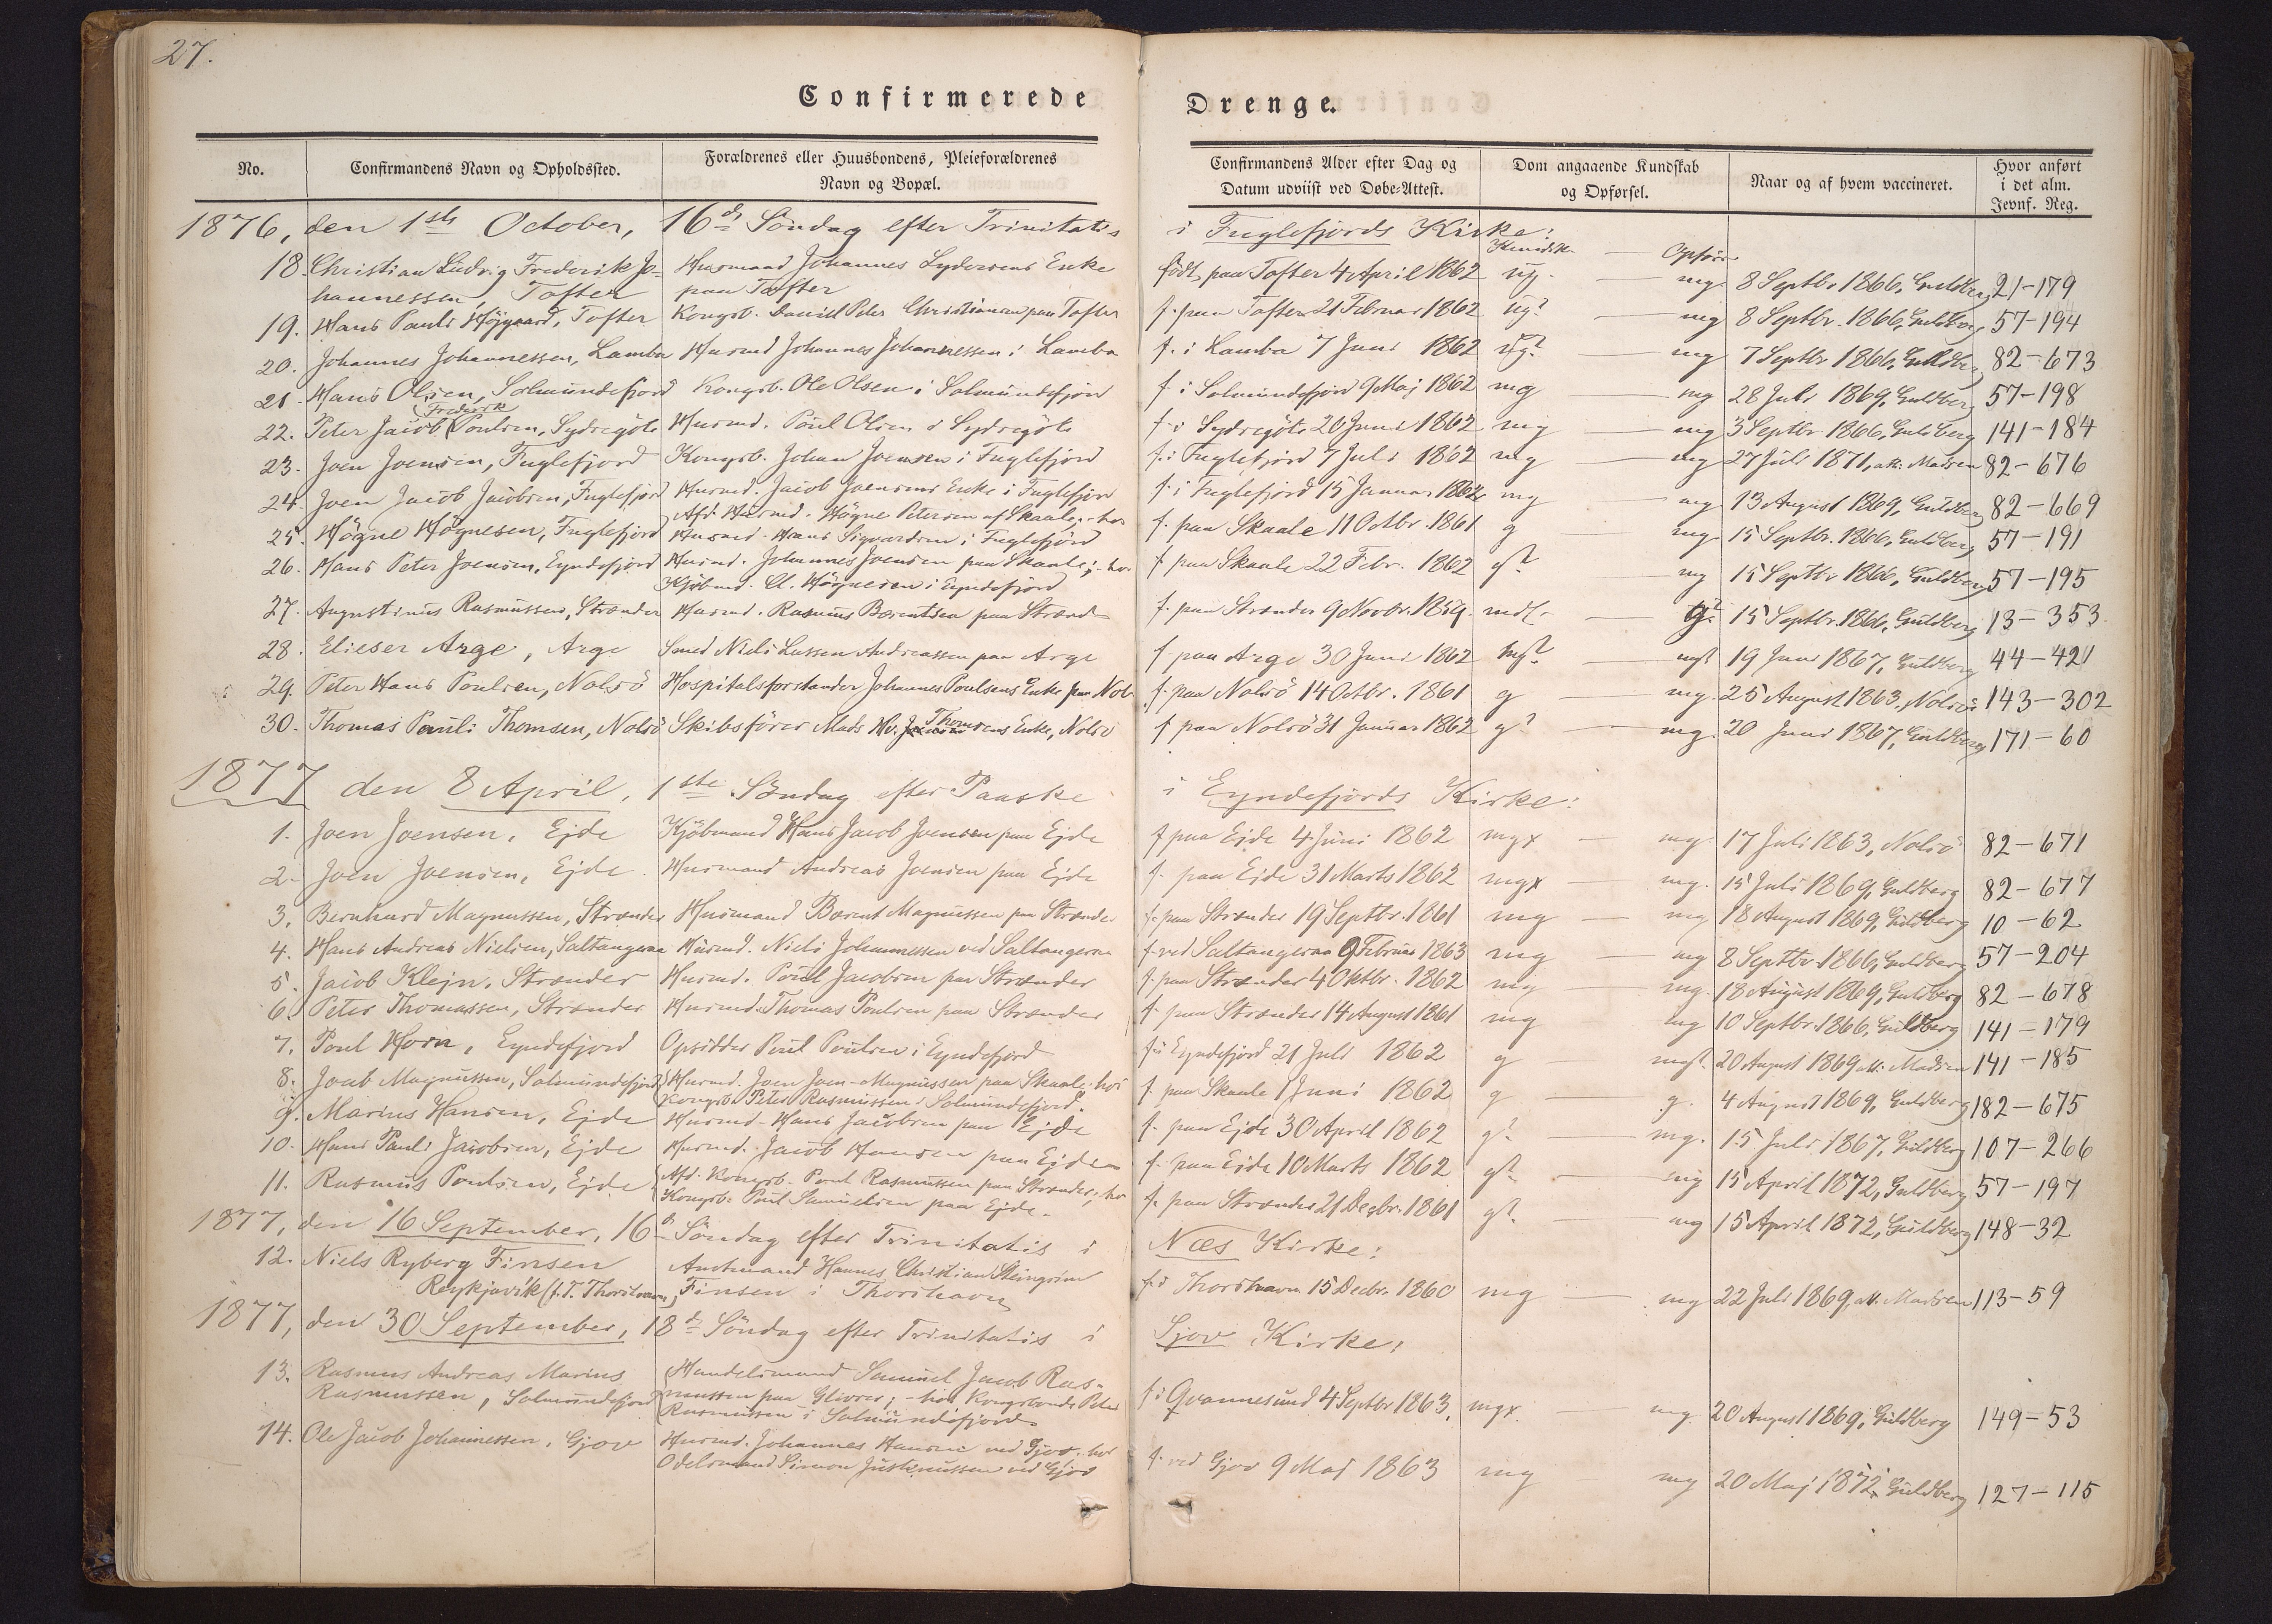 27.
Confirmerede Drenge.
No. Confirmandens Navn og Opholdssted. Forældrenes eller Huusbondens, Pleieforældrenes Navn og Bopæl. Confirmandens Alder efter Dag og Datum udviist ved Døbe-Attest. Dom angaaende Kundskab og Opførsel. Naar og af hvem vaccineret. Hvor anført i det alm. Jevnf. Reg.
1876, den 1ste October, 16de Söndag efter Trinitatis i Fuglefjords Kirke:
Kundsk. — Opförs.
18. Christian Ludvig Frederik Jo- Husmand Johannes Lydersens Enke født paa Tofter 4 April 1862 ug. — mg. 8 Septbr 1866, Guldberg 21-179
hannessen, Tofter paa Tofter
19. Hans Pauli Højgaard, Tofter Kongsb. Daniel Peter Christiansen paa Tofter f. paa Tofter 21 Februar 1862 ug? — mg 8 Septbr. 1866, Guldberg 57-194
20. Johannes Johannessen, Lamba Husmd Johannes Johannessen i Lamba f. i Lamba 7 Juni 1862 ug? — mg 7 Septbr 1866, Guldberg 82-673
21. Hans Olsen, Solmundefjord Kongsb. Ole Olsen i Solmundefjord f. i Solmundefjord 9 Maj 1862 mg — mg 28 Juli 1869, Guldberg 57-198
22. Peter Jacob (Frederik Poulsen, Sydregöte Husmd. Poul Olsen i Sydregöte f. i Sydregöte 20 Juni 1862 mg — mg 3 Septbr. 1866, Guldberg 141-184
23. Joen Joensen, Fuglefjord Kongsb. Johan Joensen i Fuglefjord f. i Fuglefjord 7 Juli 1862 mg — mg 27 Juli 1871, att. Madsen 82-676
24. Joen Jacob Jacobsen, Fuglefjord Husmd. Jacob Joensens Enke i Fuglefjord f. i Fuglefjord 15 Januar 1862 mg — mg 13 August 1869, Guldberg 82-669
25. Högne Högnesen, Fuglefjord Afd. Husmd. Högne Petersen af Skaale; - hos f. paa Skaale 11 Octbr. 1861 g — mg. 15 Septbr. 1866, Guldberg 57-191
Husmd. Hans Sigvardsen i Fuglefjord
26. Hans Peter Joensen, Eyndefjord Husmd. Johannes Joensen paa Skaale; - hos f. paa Skaale 22 Febr. 1862 g? mg 15 Septbr 1866, Guldberg 57-195
Kjøbmd. Högnesen i Eyndefjord
27. Augustinus Rasmussen, Strænder Husmd. Rasmus Barentsen paa Strænd f. paa Strænder 9 Novbr. 1859. mdl. — g? 15 Septbr. 1866, Guldberg 13-353
28. Elieser Arge, Arge Smed Niels Lassen Andreassen paa Arge f. paa Arge 30 Juni 1862 mg? — mg? 19 Juni 1867, Guldberg 44-421
29. Peter Hans Poulsen, Nolsö Hospitalsforstander Johannes Poulsens Enke paa Nols f. paa Nolsö 14 Octbr. 1861 g — mg. 25 August 1863, Nolsöe 143-302
30. Thomas Pauli Thomsen, Nolsö Skibsförer Mads Thomsens Enke, Nolsö f. paa Nolsö 31 Januar 1862 g? — mg. 20 Juni 1867, Guldberg 171-60
1877 den 8 April, 1ste Söndag efter Paaske i Eyndefjords Kirke:
1. Joen Joensen, Ejde Kjöbmand Hans Jacob Joensen paa Ejde f. paa Ejde 4 Juni 1862 mgx — mg. 17 Juli 1863, Nolsö 82-671
2. Joen Joensen, Ejde Husmand Andreas Joensen paa Ejde f. paa Ejde 31 Marts 1862 mgx — mg. 15 Juli 1869, Guldberg 82-677
3. Bernhard Magnussen, Strænder Husmand Barent Magnussen paa Strænder f. paa Strænder 19 Septbr. 1861 mg — mg 18 August 1869, Guldberg 10-62
4. Hans Andreas Nielsen, Saltangeraa Husmd. Niels Johannessen ved Saltangeraa f. ved Saltangeraa 9 Februar 1863 mg — mg 8 Septbr 1866, Guldberg 57-204
5. Jacob Klejn, Strænder Husmd. Poul Jacobsen paa Strænder f. paa Strænder 4 Oktbr. 1862 mg — mg. 18 August 1869, Guldberg 82-678
6. Peter Thomassen, Strænder Husmd. Thomas Poulsen paa Strænder f. paa Strænder 14 August 1861 mg mg 10 Septbr 1866, Guldberg 141-179
7. Poul Horn, Eyndefjord Opsidder Poul Poulsen i Eyndefjord f. i Eyndefjord 21 Juli 1862 g — mg? 20 August 1869 att. Madsen 141-185
8. Magnussen, Solmundefjord Husmd. Joen Joen-Magnussen paa Skaale hos f. paa Skaale 1 Juni 1862 g — g. 4 August 1869, Guldberg 182-675
Kongsb. Peter Rasmussen i Solmundefjord.
9. Marius Hansen, Ejde Husmd. Hans Jacobsen paa Ejde f. paa Ejde 30 April 1862 g? — mg. 15 Juli 1867, Guldberg 107-266
10. Hans Pauli Jacobsen, Ejde Husmd. Jacob Hansen paa Ejde f. paa Ejde 10 Marts 1862 g? — mg 15 April 1872, Guldberg 57-197
11. Rasmus Poulsen, Ejde Afd. Kongsb. Poul Rasmussen paa Strænder; hos f. paa Strænder 21 Decbr. 1861 g? — mg 15 April 1872, Guldberg 148-32
Kongsb. Poul Samuelsen paa Ejde.
1877, den 16 September, 16de Söndag efter Trinitatis i Næs Kirke:
12. Niels Ryberg Finsen Amtmand Hannes Christian Steingrim f. i Thorshavn 15 Decbr. 1860 mg — mg 22 Juli 1869, att. Madsen 113-59
Reykjavík (f. T. Thorshavn) Finsen i Thorshavn
1877, den 30 September, 18de Söndag efter Trinitatis i Gjov Kirke:
13. Rasmus Andreas Marius Handelsmand Samuel Jacob Ras-
Rasmussen, Solmundefjord mussen paa Glivrer; - hos Kongsbonde Peter f. i Qvannesund 4 Septbr 1863, mgx. — mg. 20 August 1869, Guldberg 149-53
Rasmussen i Solmundefjord.
14. Ole Jacob Johannessen, Gjov Husmd. Johannes Hansen ved Gjov. hos f. ved Gjov 9 Maj 1863 mg mg 20 Maj 1872, Guldberg 127-115
Odelsmand Simon Justinussen ved Gjov